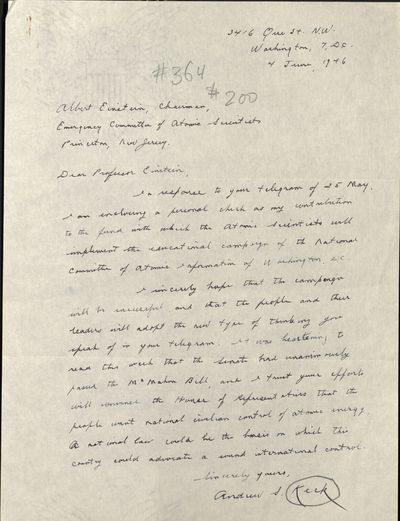 3416 Que St. N.W.
Washington, 7, D.C.
4 June, 1946
#364
$200
Albert Einstein, Chairman,
Emergency Committee of Atomic Scientists
Princeton, New Jersey.
Dear Professor Einstein,
In response to your telegram of 25 May,
I am enclosing a personal check as my contribution
to the fund with which the Atomic Scientists will
implement the educational campaign of the National
Committee of Atomic Information of Washington, D.C.
I sincerely hope that the campaign
will be successful and that the people and their
leaders will adopt the new type of thinking you
speak of in your telegram. It was heartening to
read this week that the Senate had unanimously
passed the McMahon Bill, and I trust your efforts
will convince the House of Representatives that the
people want national civilian control of atomic energy.
A national law could be the basis on which this
country could advocate a sound international control.
Sincerely yours,
Andrew S. Keck